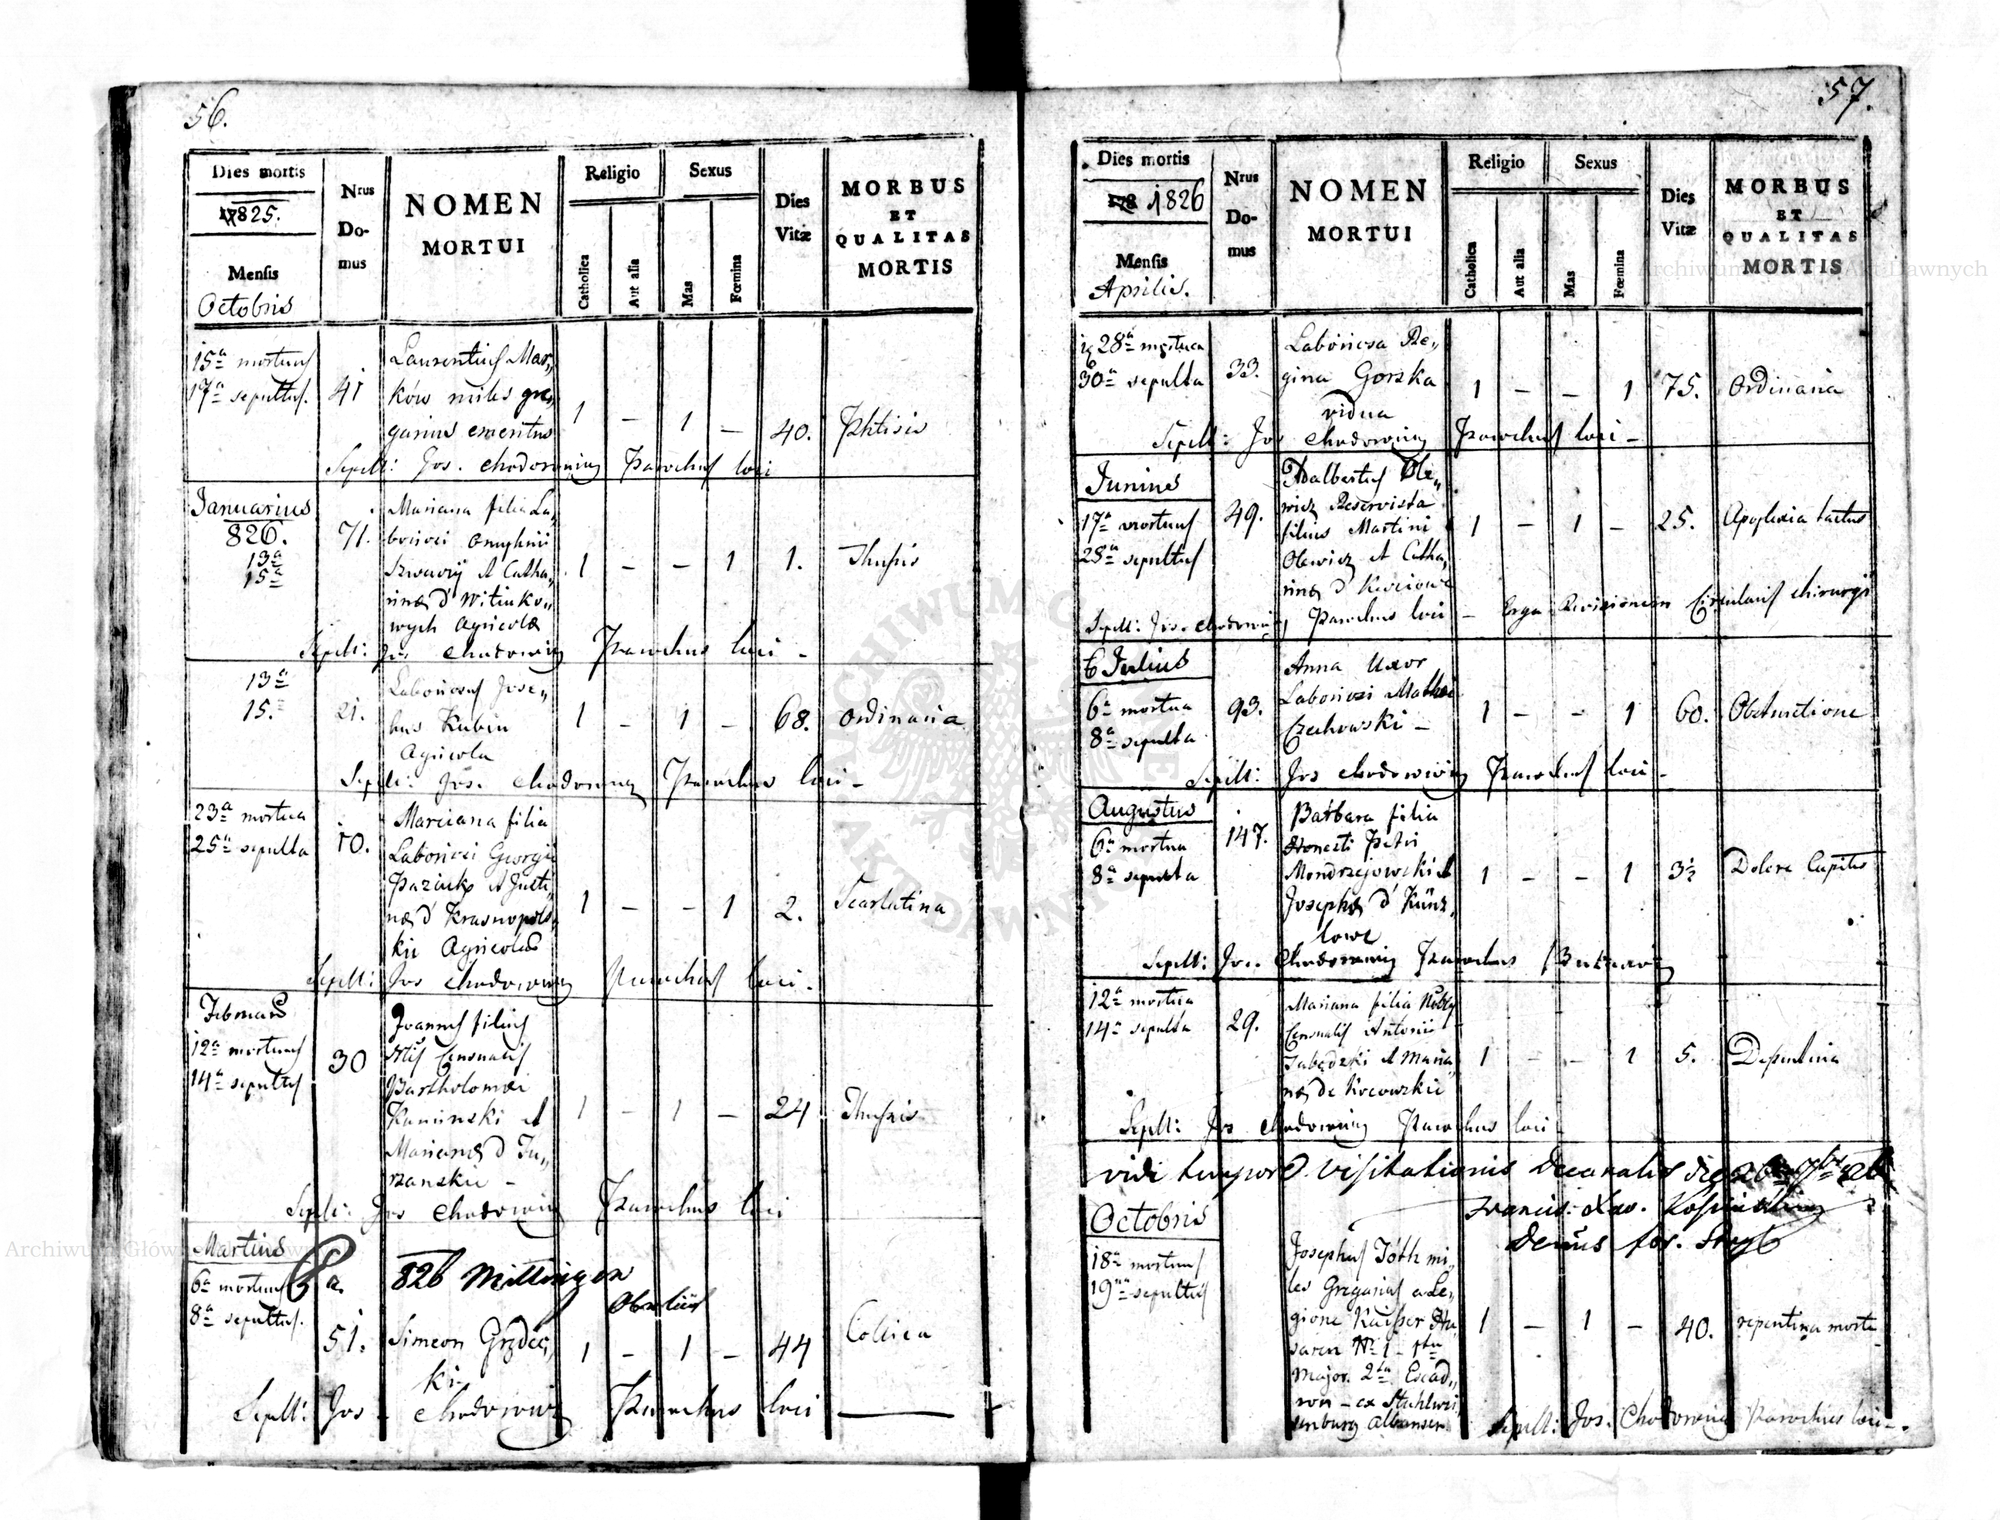 56.
Dies mortis
1825.
Mensis
Octobris
Nrus
Do-
mus
NOMEN
MORTUI
Religio
Catholica
Aut alia
Sexus
Mas
Fœmina
Dies
Vitæ
MORBUS
ET
QUALITAS
MORTIS
15a mortuus
17a sepultus.
41
Laurentius Mar„
ków miles gre„
garius emeritus
1 – 1 – 40. Phtisis
Sepell: Jos. Chodowiny Parochus loci
Januarius
826.
13a
15a
71.
Mariana filia La„
boriosi
et Catha„
rinæ d'Witiuko„
wych Agricolæ
1 – – 1 1. Thussis
Sepell: Jos Chodowiny Parochus loci –
13a
15.a
21.
Laboriosus Jose„
hus Kubin
Agricola
1 – 1 – 68. Ordinaria
Sepell: Jos. Chodowiny Parochus loci –
23a mortua
25a sepulta
10.
Marciana filia
Laboriosi Georgii
Paziuk et Justi„
næ d'Krasnopols„
kie Agricolæ
1 – – 1 2. Scarlatina
Sepell: Jos Chodowiny Parochus loci.
Februarius
12a mortuus
14a sepultus
30
Joannes filius
Censualis
Bartholomæi
Kaminski et
Marianæ d Tu„
rzanskie –
1 – 1 – 24 Thussis
Sepell: Jos Chodowiny Parochus loci
Martius
6a mortuus
8a sepultus.
826 Mittingen
51.
Simeon Grzdec„
ki
1 – 1 – 44 Collica
Sepell: Jos – Chodowiny Parochus loci
57.
Dies mortis
1826
Mensis
Aprilis.
Nrus
Do-
mus
NOMEN
MORTUI
Religio
Catholica
Aut alia
Sexus
Mas
Fœmina
Dies
Vitæ
MORBUS
ET
QUALITAS
MORTIS
28a mortua
30a sepulta
33.
Laboriosa Re„
gina Gorzka
vidua
1 – – 1 75. Ordinaria
Sepell: Jos Chodowiny Parochus loci –
Junius
17a mortuus
28a sepultus
49.
Adalbertus Ole„
wicz Reservista
filius Martini
Olewicz et Catha„
rinæ d
1 – 1 – 25. Apoplexia tactus
Sepell: Jos. Chodowiny Parochus loci – Erga Revisionem Circularis Chirurgi
Julius
6a mortua
8a sepulta
93.
Anna Uxor
Laboriosi Mathæi
Czechowski –
1 – – 1 60. Obstructione
Sepell: Jos Chodowiny Parochus loci –
Augustus
6a mortua
8a sepulta
147.
Barbara filia
Honesti Petri
Mondrzejowski et
Josephæ d' Künz„
lowe
1 – – 1 3½ Dolore Capitis
Sepell: Jos. Chodowiny Parochus
12a mortua
14a sepulta
29.
Mariana filia
Censualis Antonii
et Maria„
næ de Kocowskie
1 – – 1 5.
Sepell: Jos Chodowiny Parochus loci
vidi tempore visitationis Decanalis
Francis: Xav.
Octobris
18a mortuus
19na sepultus
Josephus Tóth mi„
les Gregarius a Le„
gione Kaisser Hu„
saren No 1 –
Major. 2da Escad„
ron – ex Stuhlwei„
senburg Albenser
1 – 1 – 40. repentina morte
Sepell: Jos. Chodowiny Parochus loci –
ARCHIWUM GŁÓWNE AKT DAWNYCH
Archiwum Główne Akt Dawnych